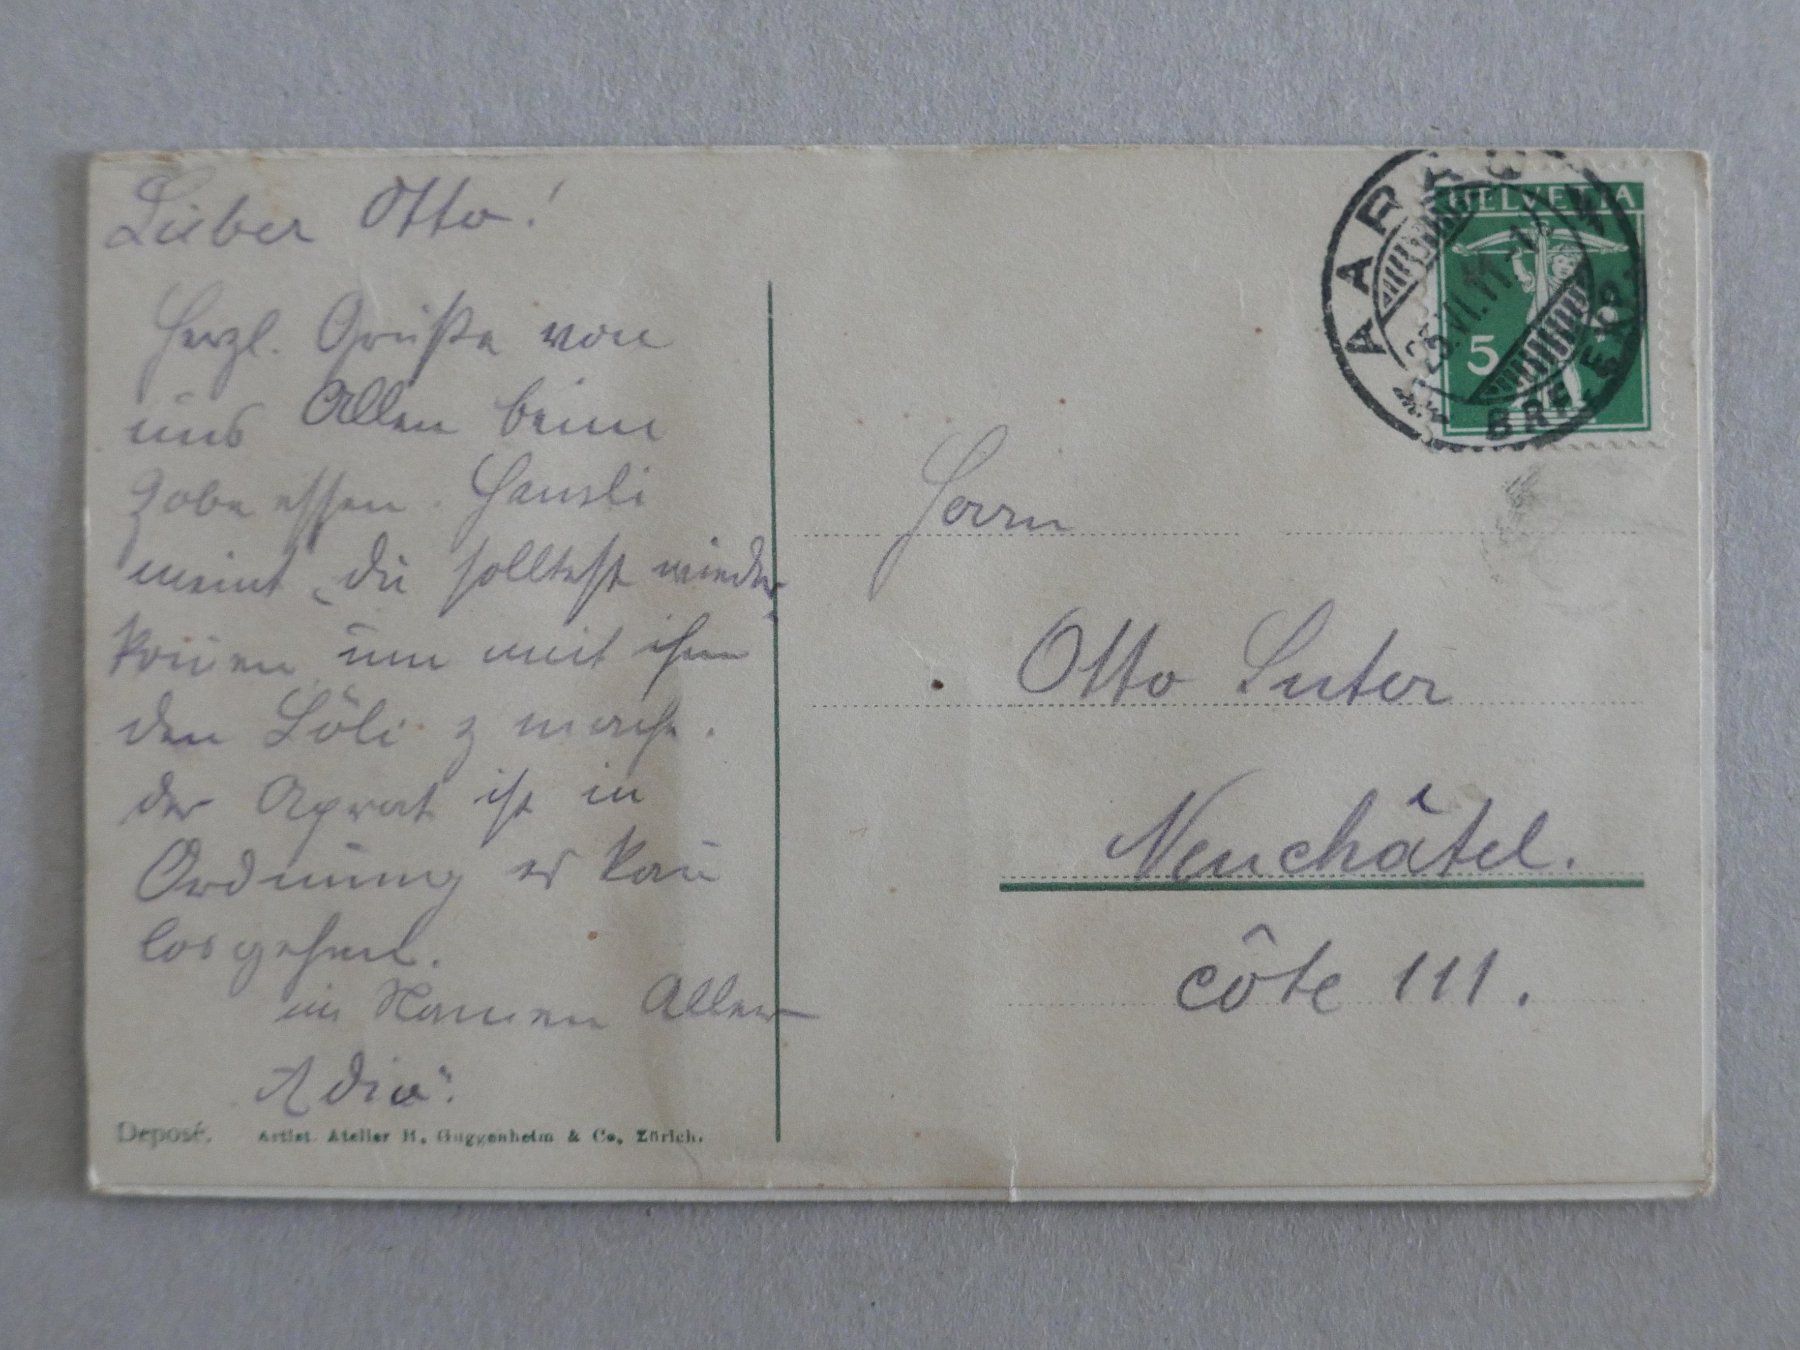 Lieber Otto!
Herzl. Grüße von
uns Allen beim
Zobe essen. Hansli
meint, du solltest wieder
koṁen um mit ihm
den Löli z mache.
der Aparat ist in
Ordnung er kan
los gehen.
im Namen Aller
Adiö.
Deposé. Artist. Atelier H. Guggenheim & Co., Zürich.
AARAU
25.VI.11.
BRF. EXP.
HELVETIA
5
Herrn
Otto Suter
Neuchâtel.
côte 111.